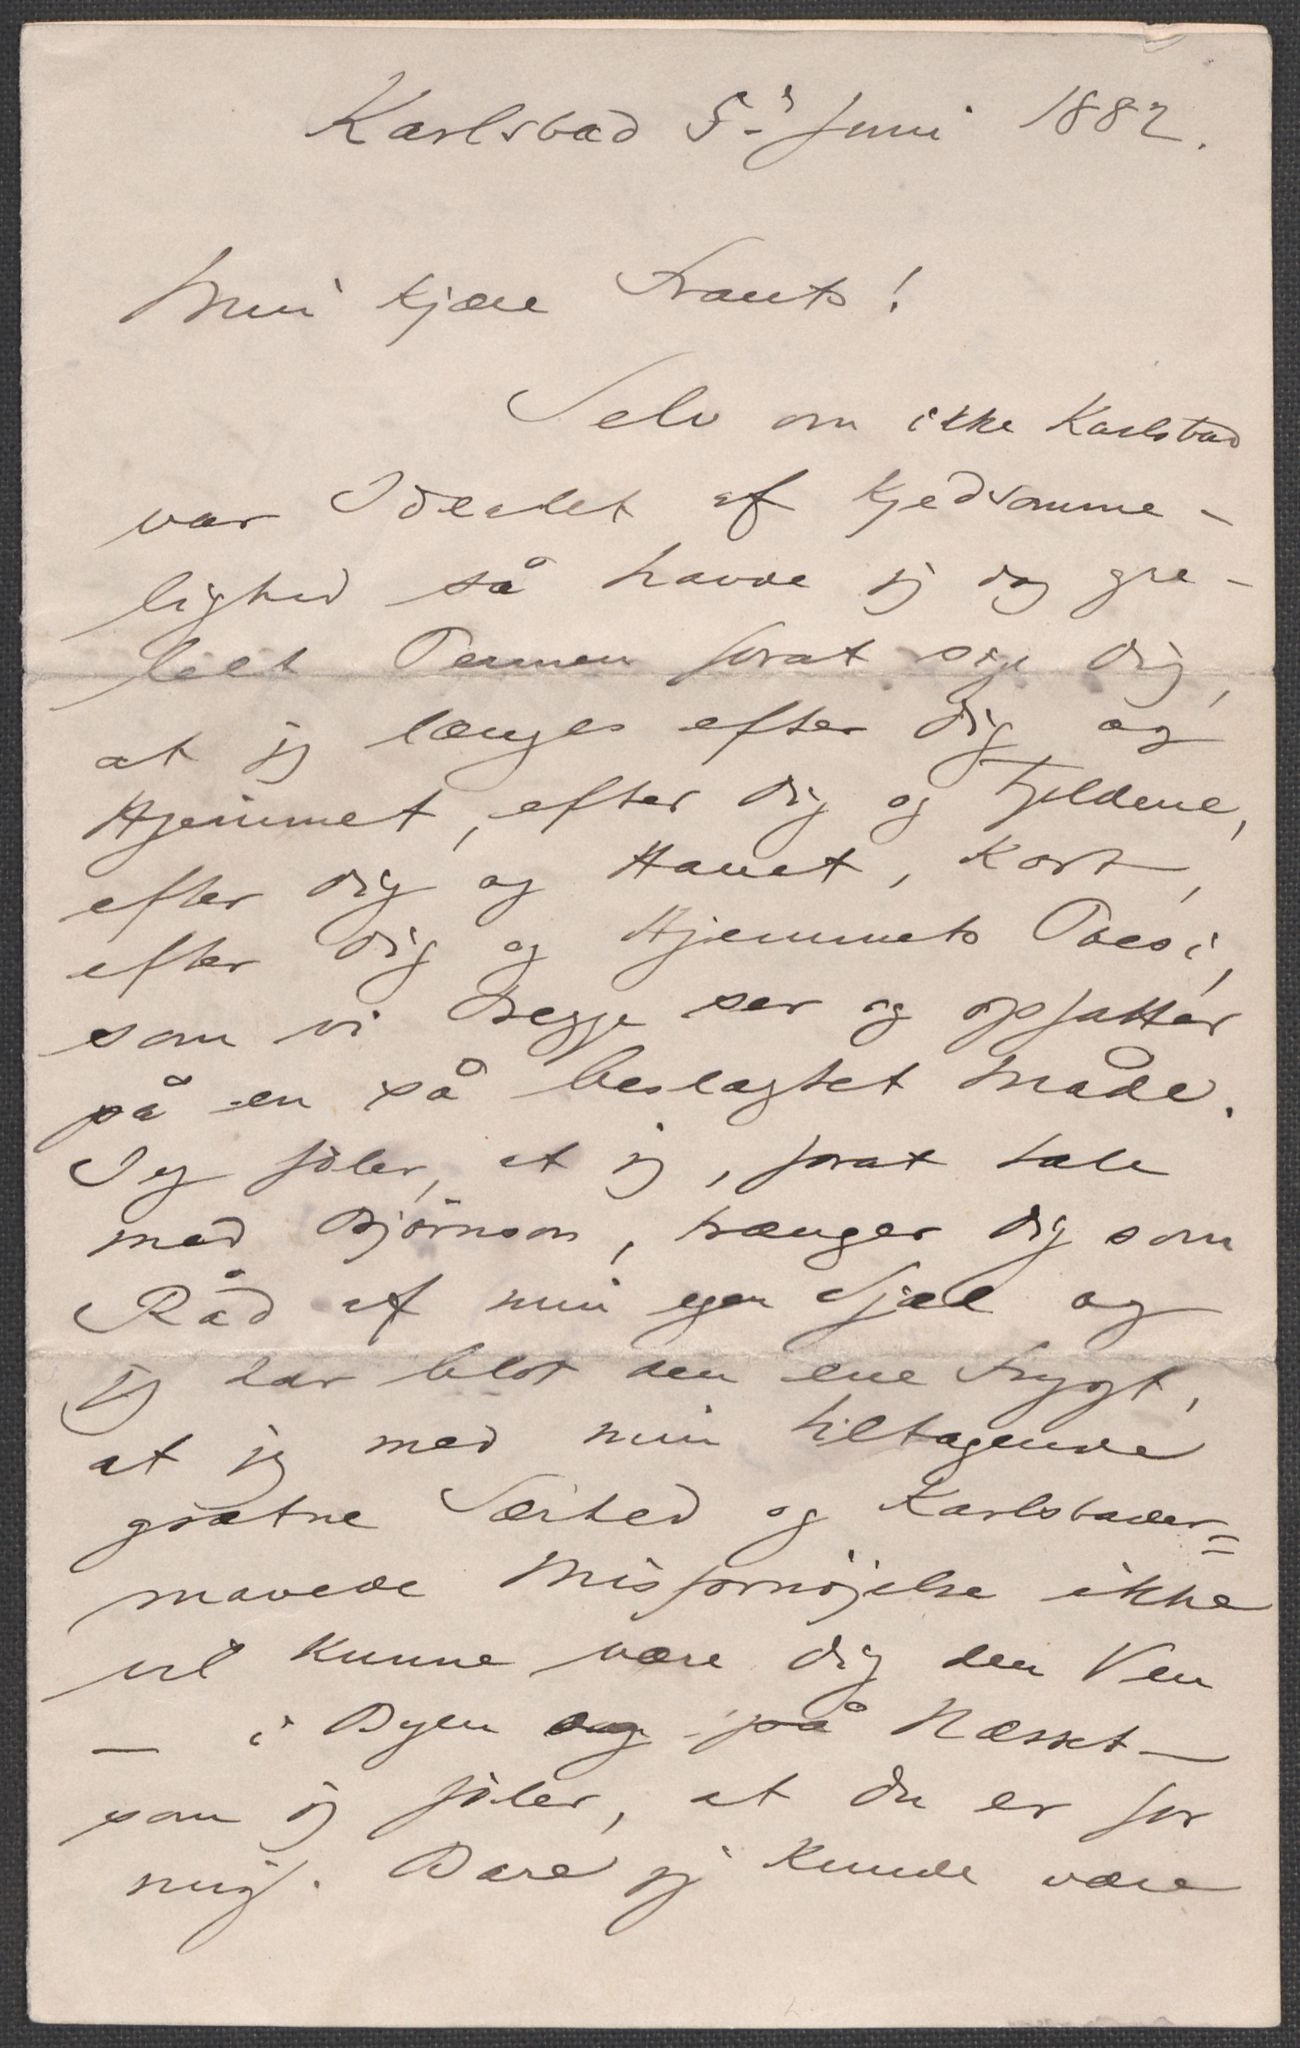 Karlsbad 5-' Juni 1882.
Min kjære Frants!
Selv om ikke Karlsbad
var Idealet af Kjedsomme-
lighed så havde jeg dog gre-
bet Pennen forat sige Dig,
at jeg længes efter Dig og
Hjemmet, efter Dig og Fjeldene,
efter Dig og Havet, Kort,
efter Dig og Hjemmets Poesi,
som vi begge ser og opfatter
på en så beslægtet Måde.
Jeg föler, at jeg, forat tale
med Björnson, trænger Dig som
Råd af min egen Sjæl og
jeg har blot den ene Frygt,
at jeg med min tiltagende
grætne Særhed og Karlsbader=
mavede Misfornöjelse ikke
vil kunne være Dig den Ven
– i Byen og på Næsset –
som jeg föler, at Du er for
mig. Bare jeg kunde være